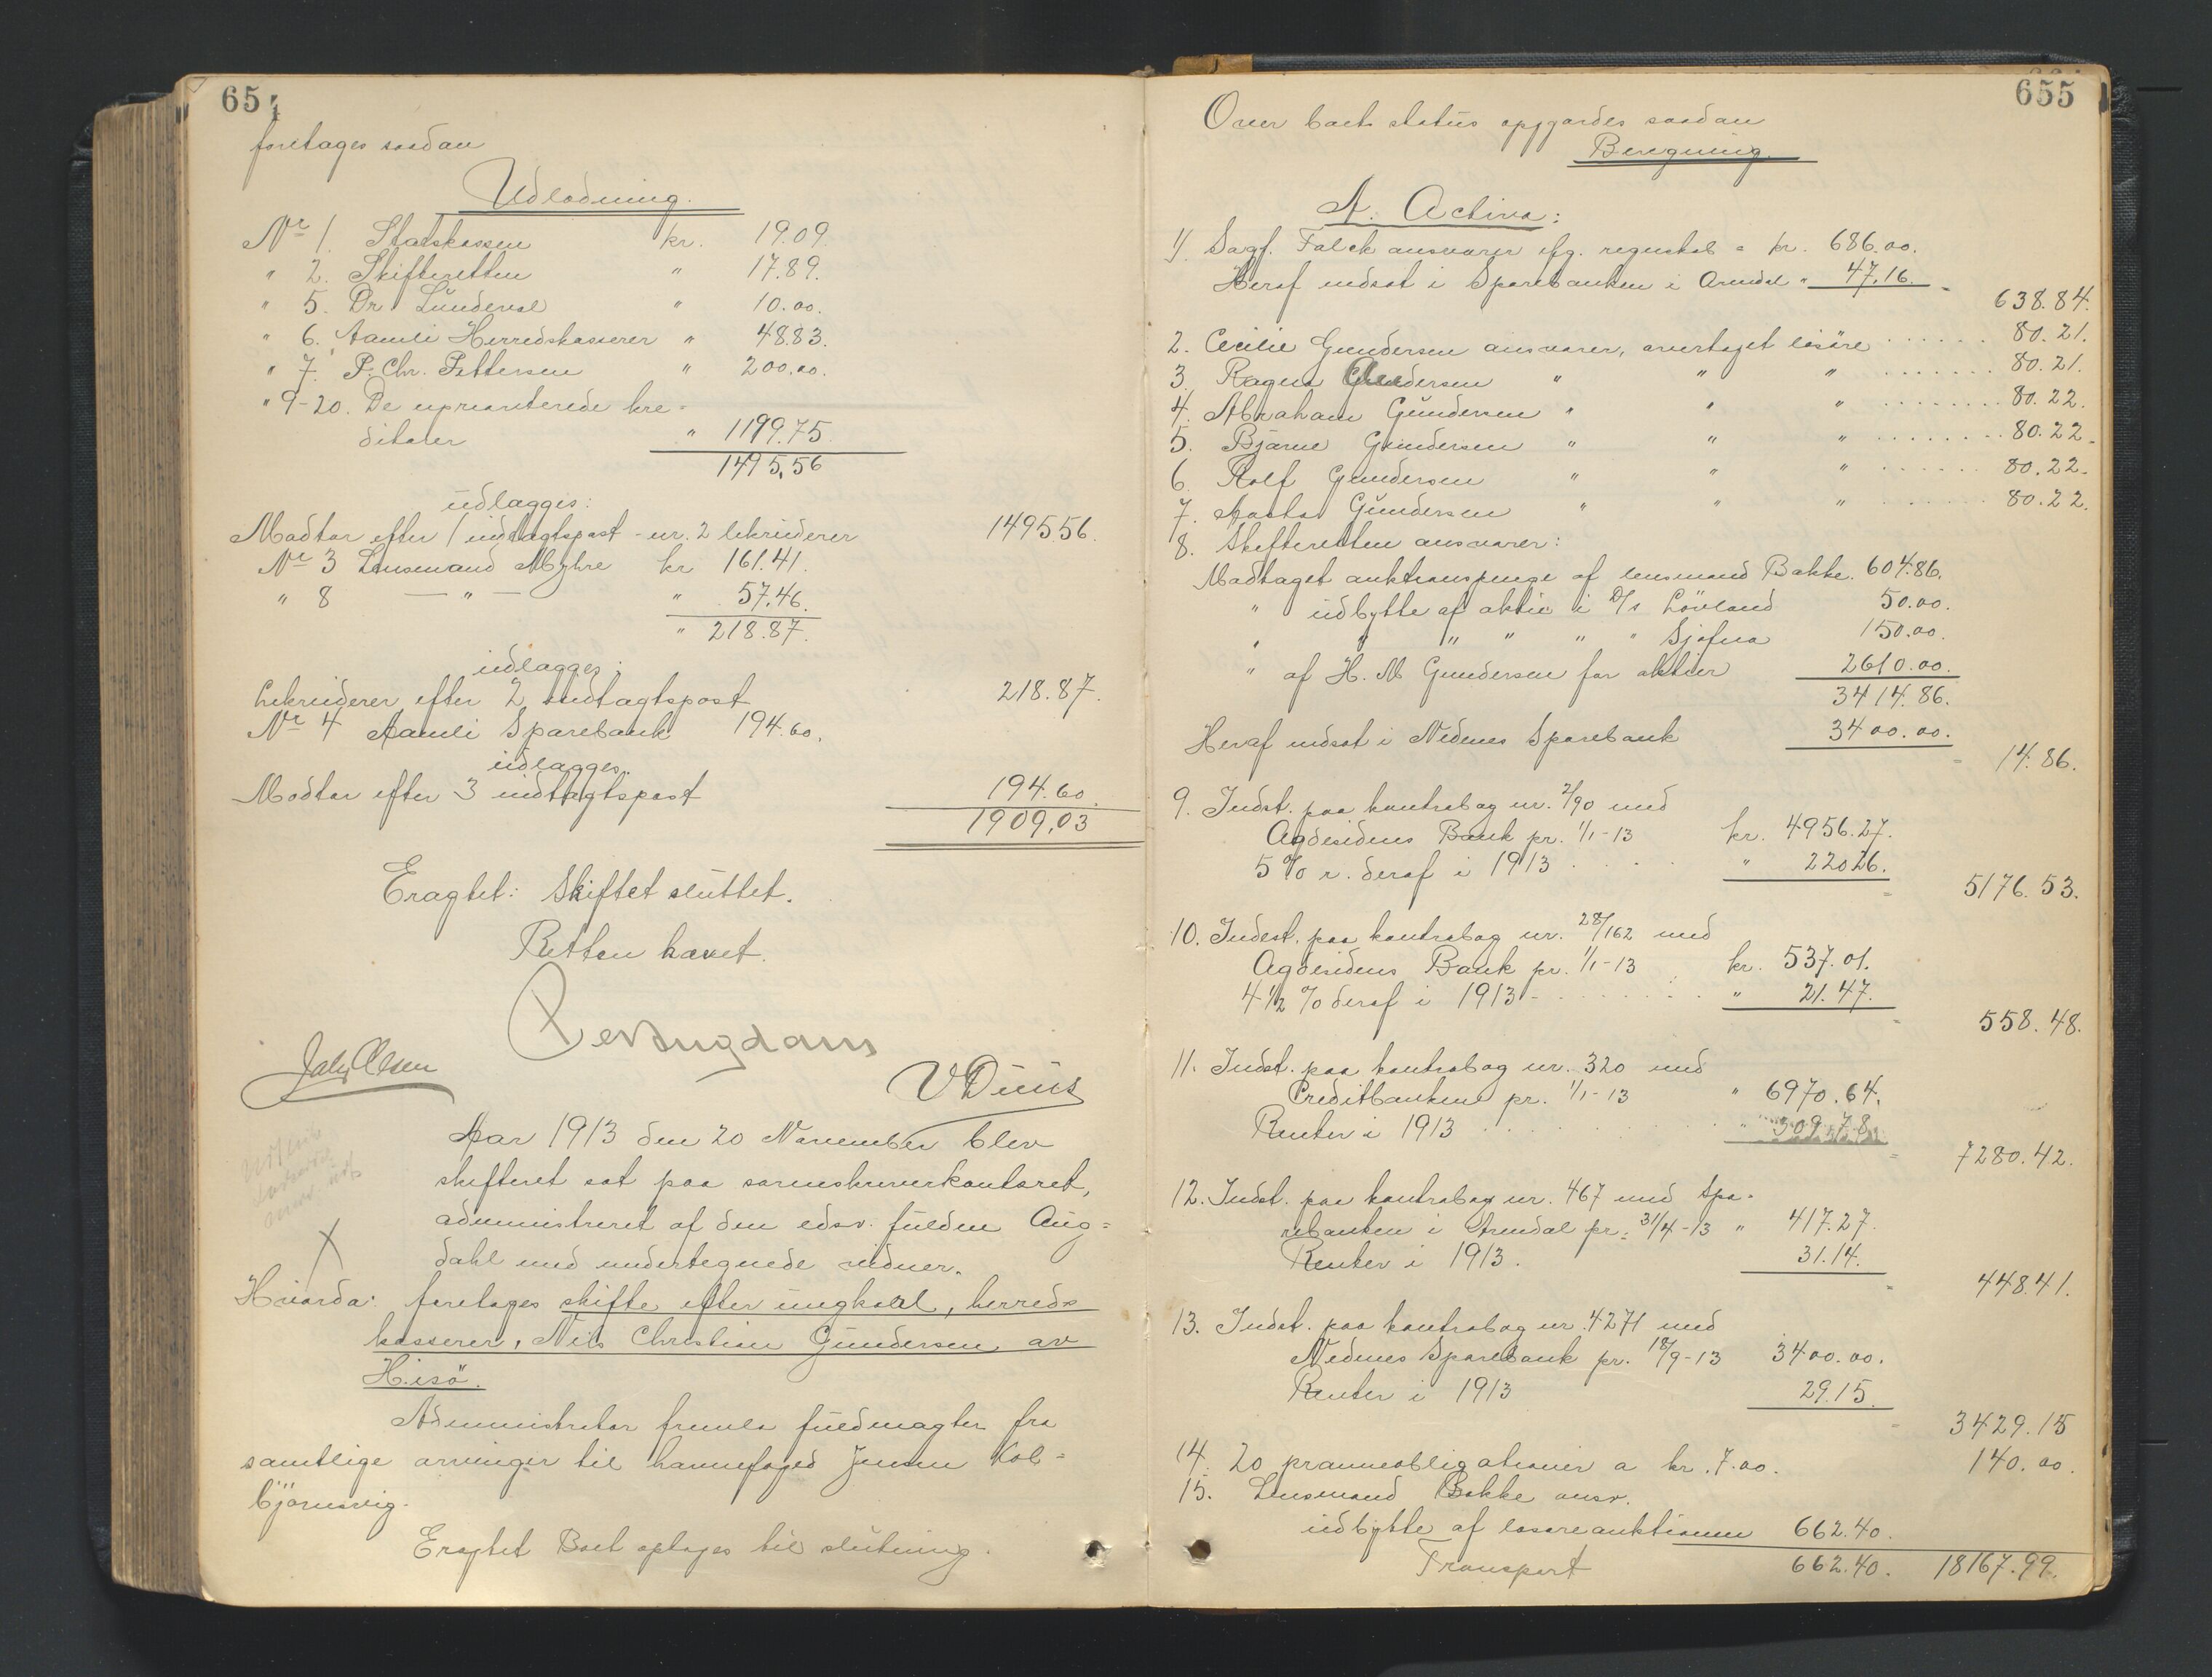 654
foretages saadan
Udlodning.
Nr 1. Statskassen kr. 19.09.
" 2. Skifteretten " 17.89.
" 5. Dr Lundevol " 10.00.
" 6. Aamli Herredskasserer " 48.83.
" 7. P. Chr. Pettersen " 200.00.
" 9-20. De uprioriterede kre-
ditorer " 1199.75
1495,56
udlægges:
Modtar efter 1 indtægtspost - nr. 2 likviderer 1495.56.
Nr 3 Lensmand Myhre kr 161.41.
" 8 — " — " 57.46.
" 218.87.
udlægges:
Likviderer efter 2 indtægtspost 218.87.
Nr 4 Aamli Sparebank 194.60.
udlægges.
Modtar efter 3 indtægtspost 194.60.
1909,03
Eragtet: Skiftet sluttet.
Retten hævet.
Per Augdahl
Jah. Olsen
V Duus
Aar 1913 den 20 November blev
skifteret sat paa sorenskriverkontoret,
administreret af den edsv. fuldm Aug-
dahl med undertegnede vidner.
X
Hvorda: foretoges skifte efter ungkarl, herreds
kasserer, Nils Christian Gundersen av
Hisö.
Administrator fremla fuldmagter fra
samtlige arvinger til havnefoged Jensen Kol-
björnsvig.
Eragtet Boet optages til slutning.
655
Over boets status opgjordes saadan
Beregning.
A. Activa:
1/. Sagf. Falck ansvarer efg. regnskab = kr. 686.00.
Heraf indsat i Sparebanken i Arendal " 47.16. = 638.84.
2. Cecilie Gundersen ansvarer, overtaget lösöre ...... 80.21.
3. Ragna Gundersen " " " ....... 80.21.
4. Abraham Gundersen " " " ........ 80.22.
5. Bjarne Gundersen " " " ........ 80.22.
6. Rolf Gundersen " " " ...... 80.22.
7. Aasta Gundersen " " " ....... 80.22.
8. Skifteretten ansvarer:
Modtaget auktionspenge af lensmand Bakke. 604.86.
" udbytte af aktie i D/s Lövland 50.00.
" " " " " " Sjøfna 150.00.
" af H. M Gundersen for aktier 2610.00.
3414.86.
Heraf indsat i Nedenes Sparebank 3400.00. = 14.86.
9. Indst. paa kontrabog nr. 2/90 med
Agdesidens Bank pr. 1/1-13 kr. 4956.27.
5 % r. deraf i 1913 .... " 220.26. = 5176.53.
10. Indest. paa kontrabog nr. 28/162 med
Agdesidens Bank pr. 1/1-13 kr. 537.01.
4 1/2 % deraf i 1913 ....... " 21.47. = 558.48.
11. Indst. paa kontrabog nr. 320 med
Creditbanken pr. 1/1-13 " 6970.64.
Renter i 1913 .......... " 309.78. = 7280.42.
12. Indst. paa kontrabog nr. 467 med Spa-
rebanken i Arendal pr. 31/4-13 " 417.27.
Renter i 1913. 31.14. = 448.41.
13. Indst. paa kontrabog nr. 4271 med
Nedenes Sparebank pr. 18/9-13 3400.00.
Renter i 1913 29.15. = 3429.15
14. 20 præmieobligationer a kr. 7.00. 140.00.
15. Lensmand Bakke ansv.
udbytte af løsøreauktionen 662.40.
Transport 662.40. 18167.99.